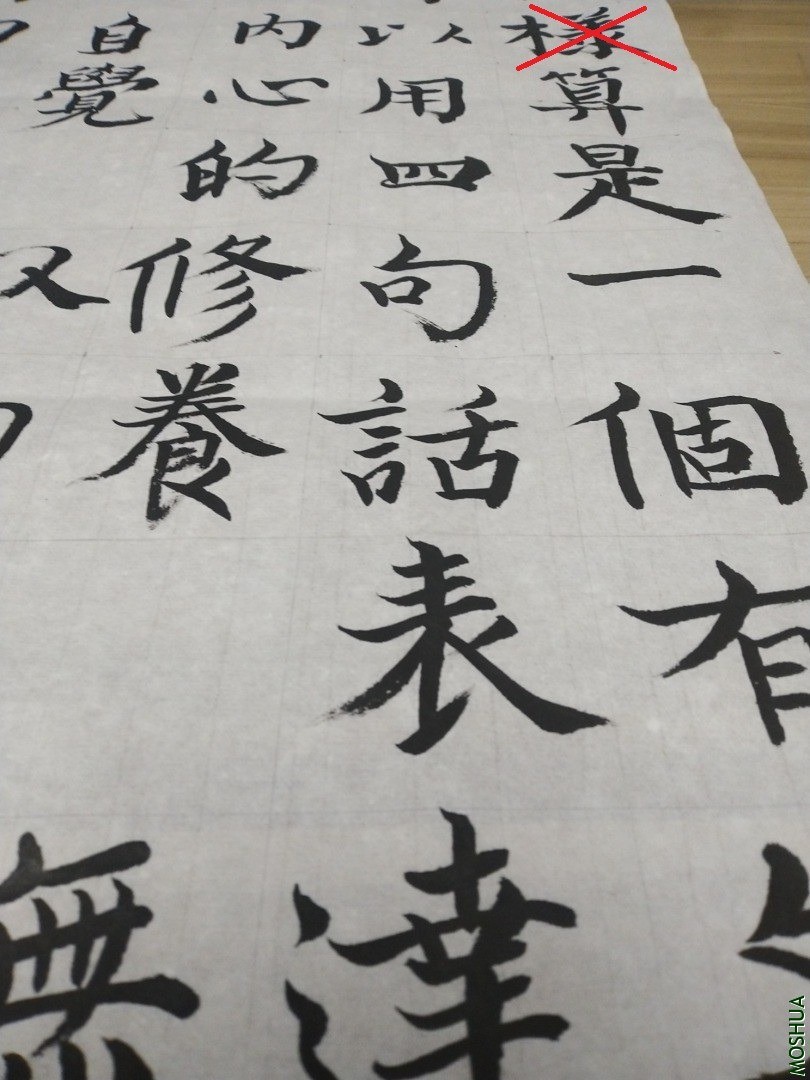 樣算是一個有
以用四句話表達
內心的修養 無
自覺
MOSHUA